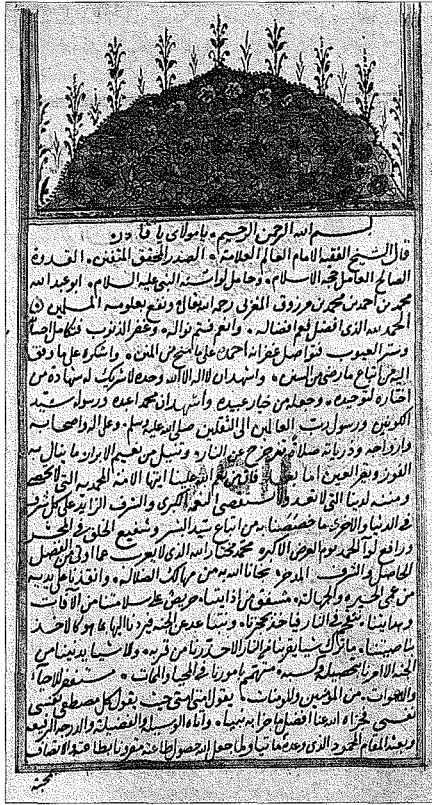 بسم الله الرحمن الرحيم، يا مولاي يا قادر
قال الشيخ الفقيه الامام العالم العلامة، الصدر المحقق المتقن، القدوة
الصالح العامل حجة الاسلام، وحامل لواء سنة النبي عليه السلام، ابو عبد الله
محمد بن احمد بن محمد بن مرزوق المغربي رحمه الله تعالى ونفع بعلومه المسلمين
الحمد لله الذي افضل نعم افضاله، وانعم فتم نواله، وغفر الذنوب فتكامل
وستر العيوب فتواصل غفرانه احمده على ما منح من المنن، واشكره على ما وفق
اليه من اتباع مارضي من السنن، واشهد ان لا اله الا الله وحده لا شريك له شهادة من
اختاره لتوحيده، وجعله من خيار عبيده واشهد ان محمدا عبده ورسوله سيد
الكونين ورسول رب العالمين الى الثقلين صلى الله عليه وسلم، وعلى اله واصحابه
وازواجه وذرياته صلاة تزحزح عن النار، وتنيل من نعيم الابرار ما ينال به
الفوز وتقر العين، اما بعد فان نعم الله علينا ايتها الامة المحمدية التي لا تحصى
ومننه لدينا التي لا تعد ولا تستقصى النعمة الكبرى والشرف الزايد على كل شرف
في الدنيا والاخرى، ما خصصنا به من اتباع سيد البشر وشفيع الخلق في المحشر
ورافع لوآ الحمد يوم العرض الاكبر، محمد مختار الله الذي لا يعرب عما اوتي من الفضل
الحاصل والشرف المدخر، نجانا الله به من مهالك الضلالة، وانقذنا على يديه
من عمى الحيرة والجهالة، مشفق من اذايتنا، حريص على سلامتنا من الآفات
وهدايتنا، نتقحم في النار فياخذ بحجزنا، وتنبنا عدعن الجنة فيردنا اليها ما هو كالآخذ
بنواصينا، ما ترك شيا يقربنا من النار الا حذرنا من قربه، ولا شيا يدنينا من
الجنة الا امرنا بتحصيله وكسبه، متهمم بامورنا في المحيا والممات، مستغفر للاحيآء
والاموات، من المؤمنين والمومنات، يقول امتي امتي حيث يقول كل مصطفى نفسي
نفسي فجزاه الله عنا افضل ما جزا به نبيا، واتاه الوسيلة والفضيلة والدرجة الرفيعة
وبعثه المقام المحمود الذي وعده